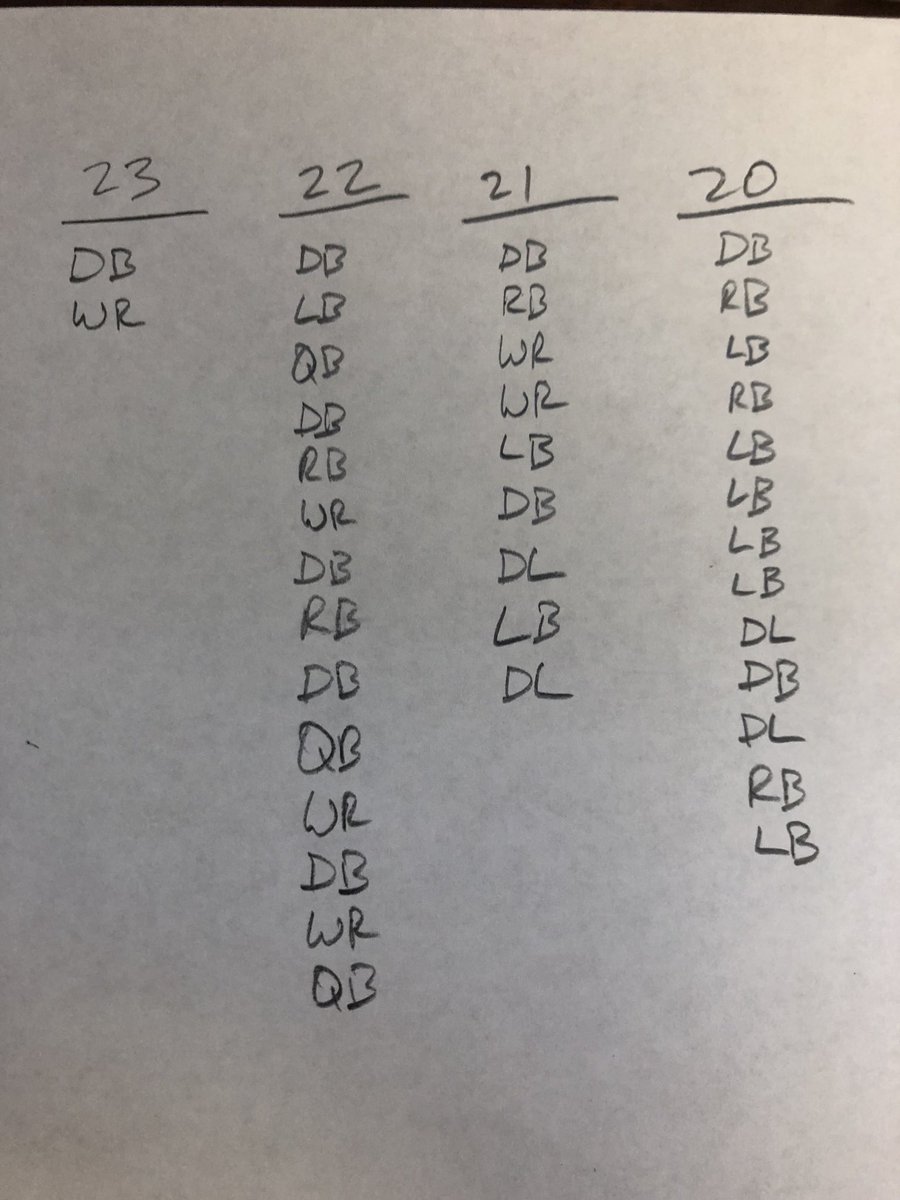 23
DB
WR
22
DB
LB
QB
DB
RB
WR
DB
RB
DB
QB
WR
DB
WR
QB
21
DB
RB
WR
WR
LB
DB
DL
LB
DL
20
DB
RB
LB
RB
LB
LB
LB
LB
DL
DB
DL
RB
LB